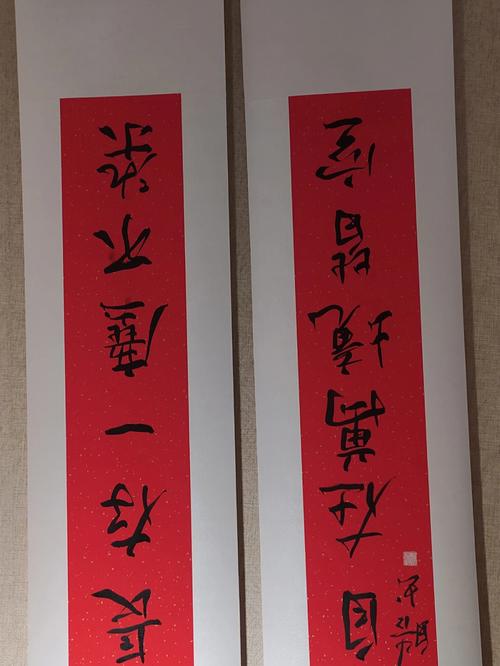 長存一塵不染
自在萬境皆空